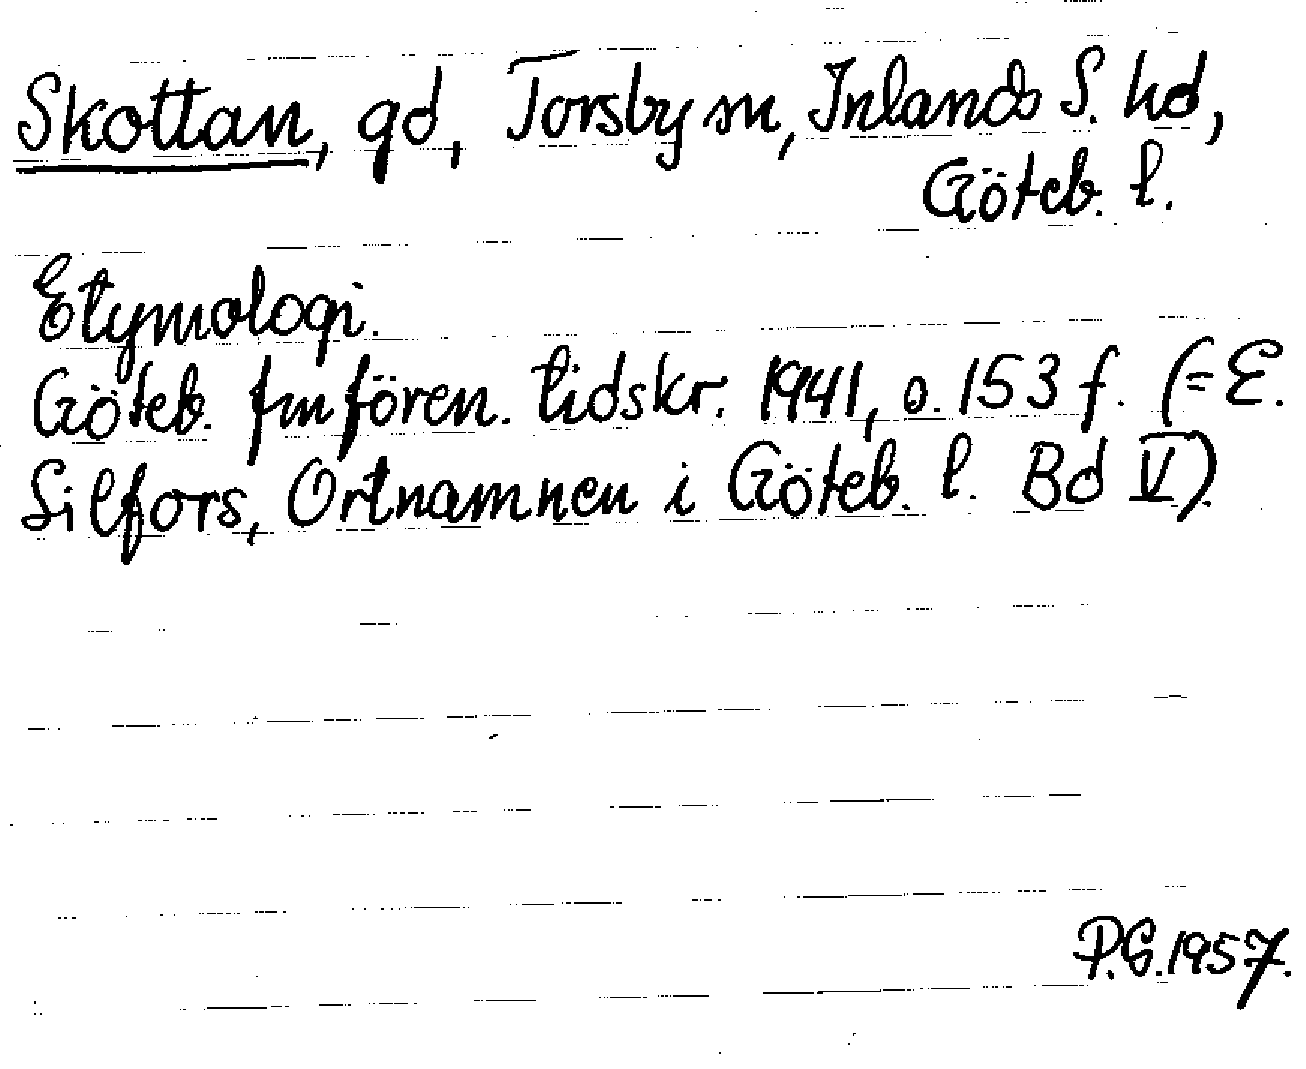 Skottan, gd, Torsby sn, Inlands S. hd,
Göteb. l.
Etymologi.
Göteb. fmfören. tidskr. 1941, s. 153 f. (= E.
Lilfors, Ortnamnen i Göteb. l. Bd V).
P.G. 1957.